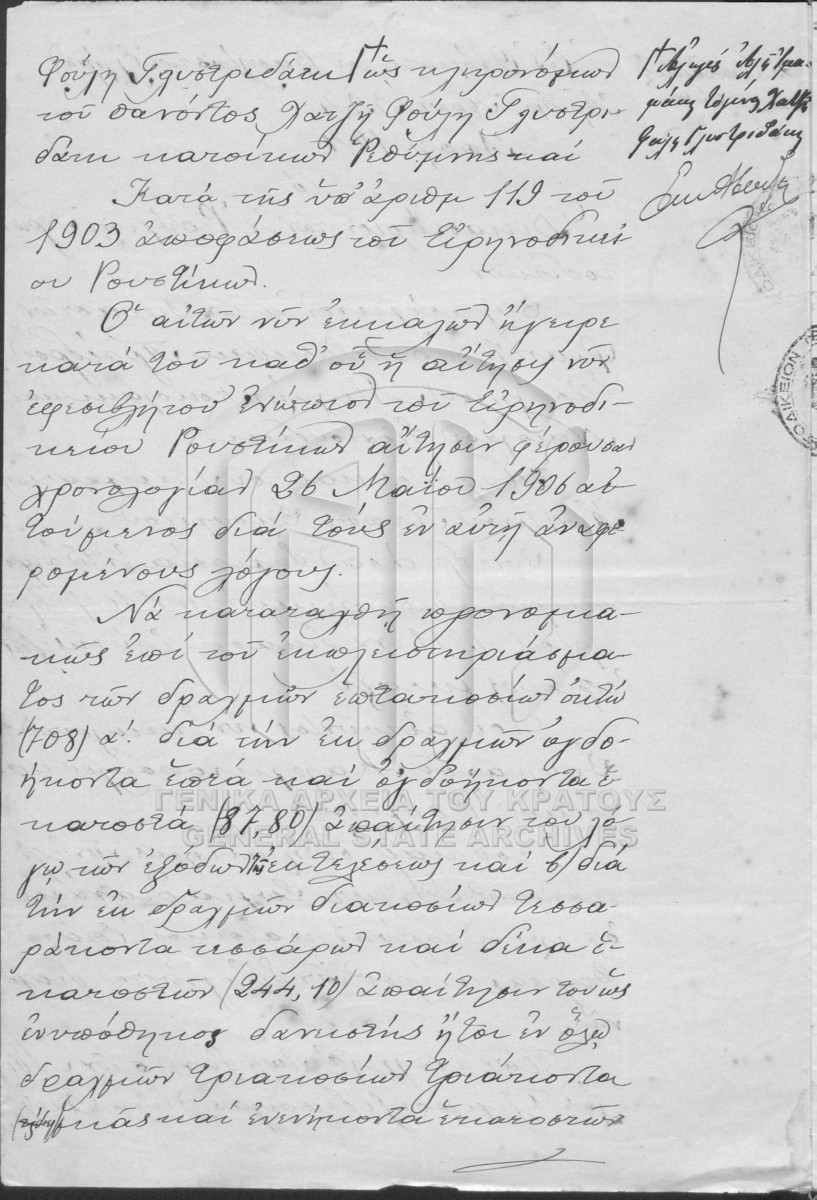 Φούλη Γλυστριδάκι ὡς κληρονόμων
τοῦ θανόντος Χατζῆ Φούλη Γλυστρι-
δάκι κατοίκων Ρεθύμνης καί
Κατά τῆς ὑπ' ἀριθμ 119 τοῦ
1903 ἀποφάσεως τοῦ Εἰρηνοδικεί
ου Ρουστίκων.
Ὁ αἰτῶν νῦν ἐκκαλῶν ἤγειρε
κατά τοῦ καθ' οὗ ἡ αἴτησις νῦν
ἐφεσιβλήτου ἐνώπιον τοῦ Εἰρηνοδι-
κείου Ρουστίκων αἴτησιν φέρουσαν
χρονολογίαν 26 Μαΐου 1906 αἰ
τούμενος διά τούς ἐν αὐτῇ ἀναφε
ρομένους λόγους.
Νά καταταχθῇ προνομια-
κῶς ἐπί τοῦ ἐκπλειστηριάσμα-
τος τῶν δραχμῶν ἑπτακοσίων ὀκτώ
(708) α'. διά τήν ἐκ δραχμῶν ὀγδο-
ήκοντα ἑπτά καί ὀγδοήκοντα ἑ-
κατοστά (87,80) ἀπαίτησιν του λό-
γῳ τῶν ἐξόδων τῆς ἐκτελέσεως καί β) διά
τήν ἐκ δραχμῶν διακοσίων τεσσα-
ράκοντα τεσσάρων καί δέκα ἑ-
κατοστῶν (244,10) ἀπαίτησιν του ὡς
ἐνυπόθηκος δανειστής ἤτοι ἐν ὅλῳ
δραχμῶν τριακοσίων τριάκοντα
μιᾶς καί ἐνενήκοντα ἑκατοστῶν
Χατζῆ
Φούλη Γλυστριδάκη
ΓΕΝΙΚΑ ΑΡΧΕΙΑ ΤΟΥ ΚΡΑΤΟΥΣ
GENERAL STATE ARCHIVES